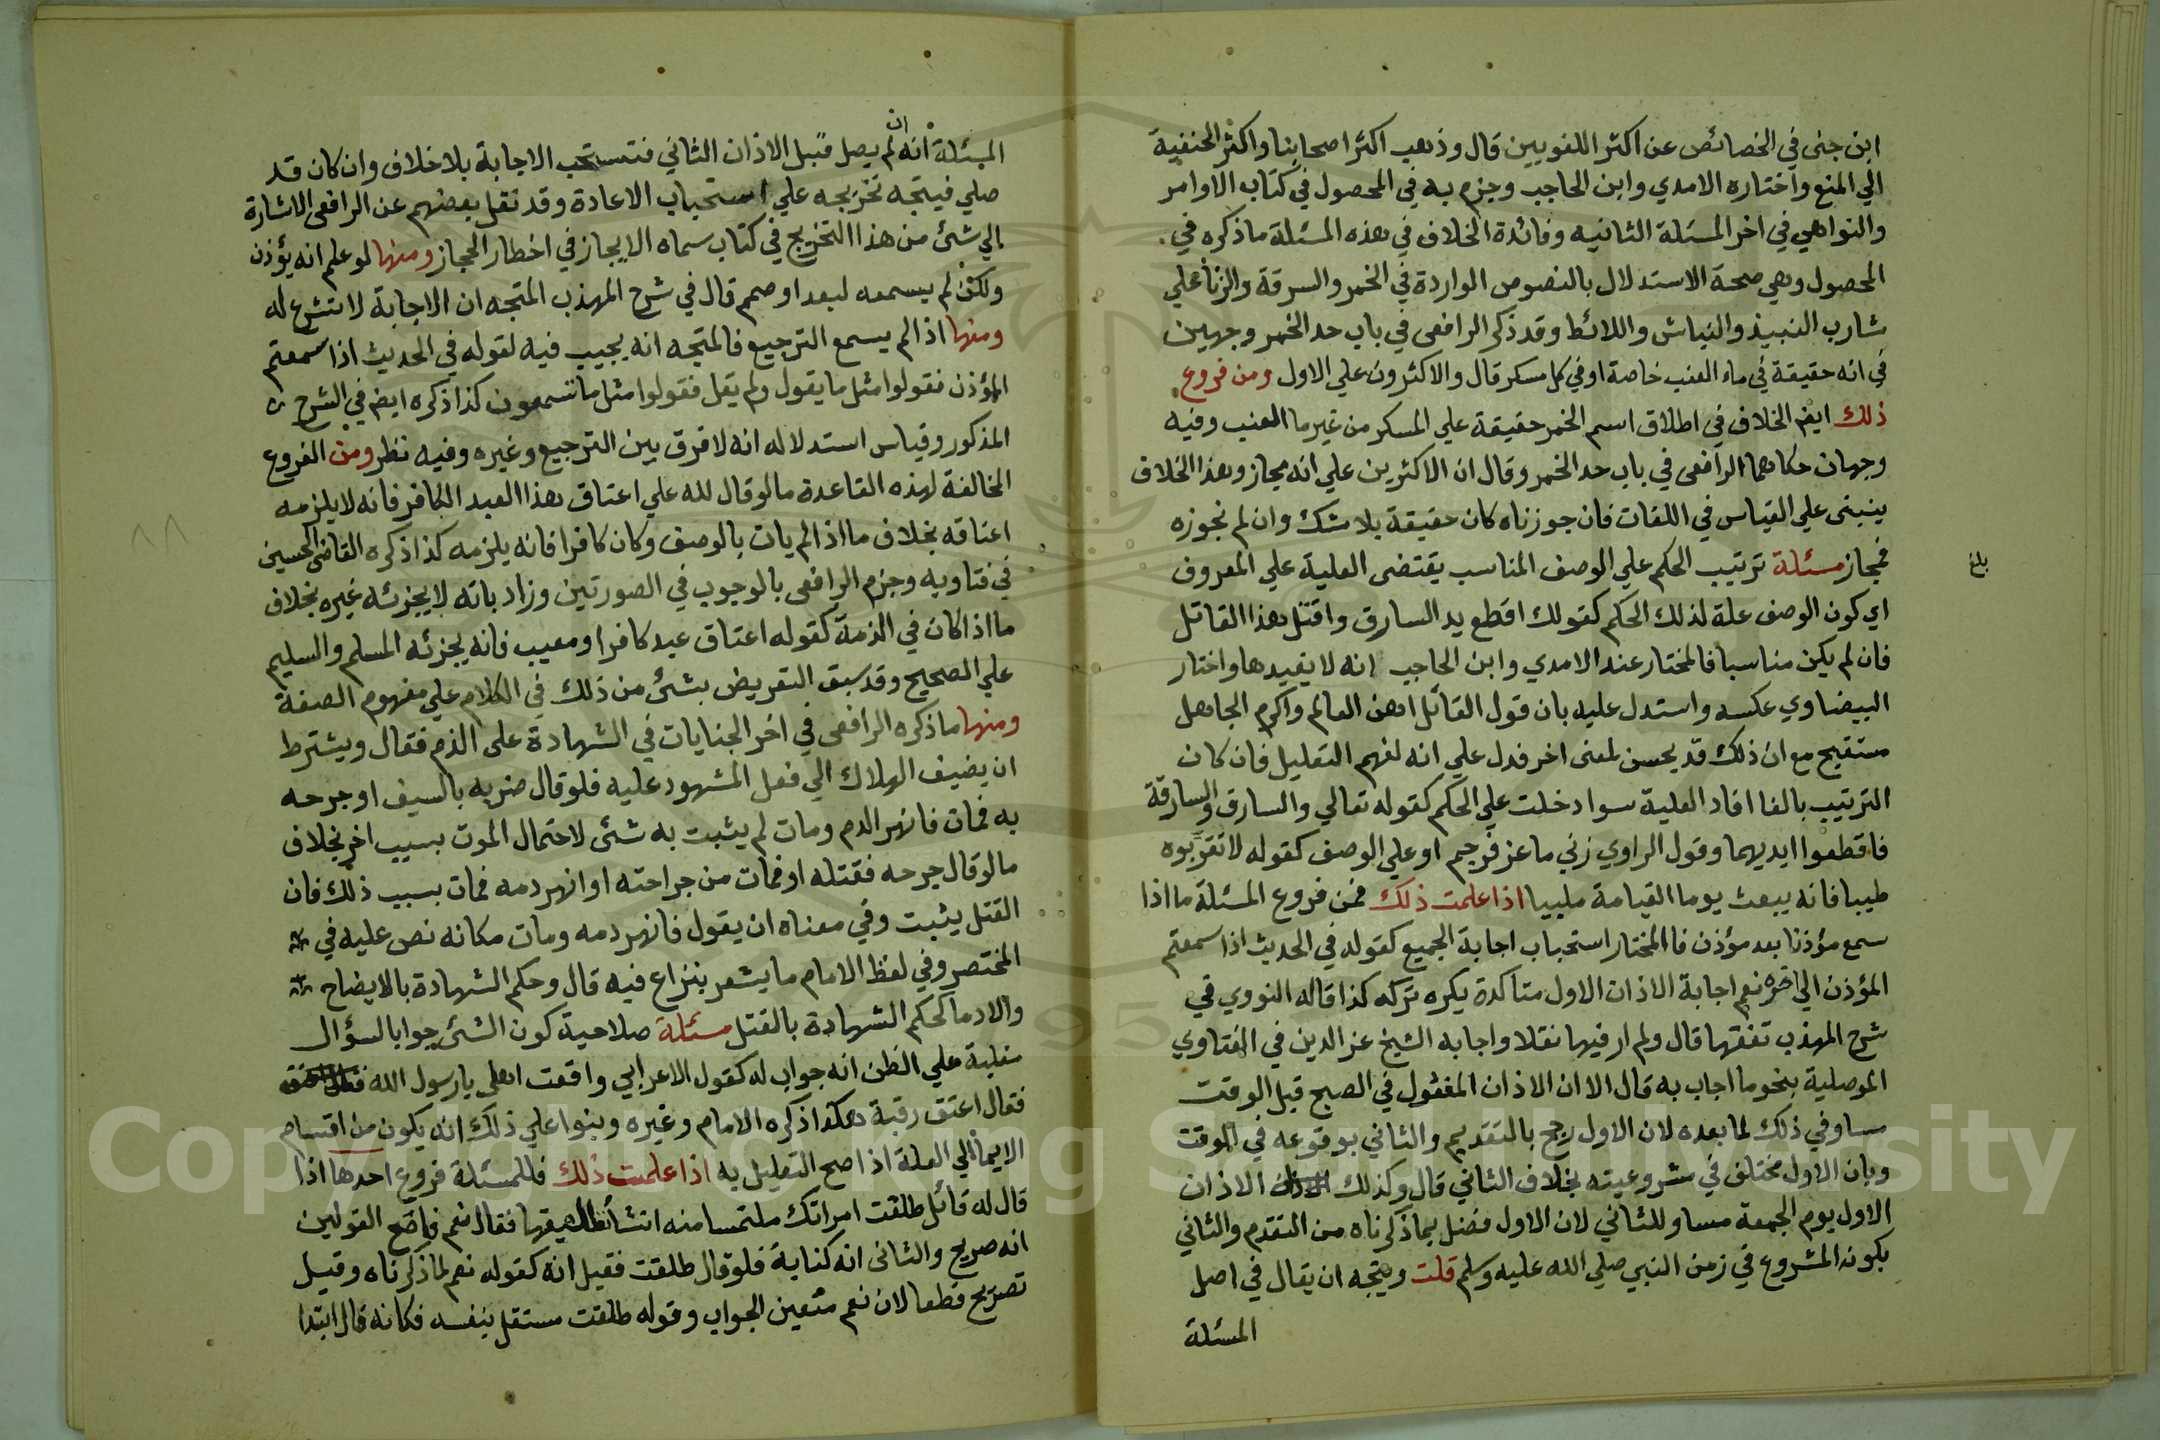 ابن جنى في الخصائص عن اكثر اللغويين قال وذهب اكثر اصحابنا واكثر الحنفية
الي المنع واختاره الامدي وابن الحاجب وجزم به في المحصول في كتاب الاوامر
والنواهي في اخر المسئلة الثانيه وفائدة الخلاف في هذه المسئلة ما ذكره في
المحصول وهي صحة الاستدلال بالنصوص الواردة في الخمر والسرقة والزنا علي
شارب النبيذ والنباش واللائط وقد ذكر الرافعى في باب حد الخمر وجهين
في انه حقيقة في ماء العنب خاصة او في كل مسكر قال والاكثرون علي الاول ومن فروع
ذلك ايض الخلاف في اطلاق اسم الخمر حقيقة علي المسكر من غير ما العنب وفيه
وجهان حكاهما الرافعى في باب حد الخمر وقال ان الاكثرين علي انه مجاز وهذا الخلاف
ينبنى علي القياس في اللغات فان جوزناه كان حقيقة بلا شك وان لم نجوزه
فمجاز مسئلة ترتيب الحكم علي الوصف المناسب يقتضى العلية علي المعروف
بلغ
اي كون الوصف علة لذلك الحكم كقولك اقطع يد السارق واقتل هذا القاتل
فان لم يكن مناسبا فالمختار عند الامدي وابن الحاجب انه لا يفيدها واختار
البيضاوي عكسه واستدل عليه بان قول القائل اهن العالم واكرم الجاهل
مستقبح مع ان ذلك قد يحسن لمعنى اخر فدل علي انه لفهم التعليل فان كان
الترتيب بالفا افاد العلية سوا دخلت علي الحكم كقوله تعالي والسارق والسارقة
فاقطعوا ايديهما وقول الراوي زني ماعز فرجم او علي الوصف كقوله لا تقربوه
طيبا فانه يبعث يوما القيامة ملبيا اذا علمت ذلك فمن فروع المسئلة ما اذا
سمع مؤذنا بعد مؤذن فا المختار استحباب اجابة الجميع كقوله في الحديث اذا سمعتم
المؤذن الي اخره نعم اجابة الاذان الاول متاكدة يكره تركه كذا قاله النووي في
شرح المهذب تفقها قال ولم ار فيها نقلا واجابه الشيخ عز الدين في الفتاوي
الموصلية بنحو ما اجاب به قال الا ان الاذان المفعول في الصبح قبل الوقت
مساو في ذلك لما بعده لان الاول رجح بالتقديم والثاني بوقوعه في الوقت
وبان الاول مختلف في مشروعيته بخلاف الثاني قال وكذلك الاذان
الاول يوم الجمعة مساو للثاني لان الاول فضل بما ذكرناه من التقدم والثاني
بكونه المشروع في زمن النبي صلي الله عليه وسلم قلت ويتجه ان يقال في اصل
المسئلة
المسئلة انه ان لم يصل قبل الاذان الثاني فتستحب الاجابة بلا خلاف وان كان قد
صلي فيتجه تخريجه علي استحباب الاعادة وقد نقل بعضهم عن الرافعى الاشارة
الي شئ من هذا التخريج في كتاب سماه الايجاز في اخطار الحجاز ومنها لو علم انه يؤذن
ولكن لم يسمعه لبعد او صمم قال في شرح المهذب المتجه ان الاجابة لا تشرع له
ومنها اذا لم يسمع الترجيع فالمتجه انه يجيب فيه لقوله في الحديث اذا سمعتم
المؤذن فقولوا مثل ما يقول ولم يقل فقولوا مثل ما تسمعون كذا ذكره ايض في الشرح
المذكور وقياس استدلاله انه لا فرق بين الترجيع وغيره وفيه نظر ومن الفروع
المخالفة لهذه القاعدة ما لو قال لله علي اعتاق هذا العبد الكافر فانه لا يلزمه
اعتاقه بخلاف ما اذا لم يات بالوصف وكان كافرا فانه يلزمه كذا ذكره القاضى الحسين
في فتاويه وجزم الرافعى بالوجوب في الصورتين وزاد بانه لا يجزئه غيره بخلاف
ما اذا كان في الذمة كقوله اعتاق عبد كافرا ومعيب فانه يجزئه المسلم والسليم
علي الصحيح وقد سبق التعريض بشئ من ذلك في الكلام علي مفهوم الصفة
ومنها ما ذكره الرافعى في اخر الجنايات في الشهادة على الدم فقال ويشترط
ان يضيف الهلاك الي فعل المشهود عليه فلو قال ضربه بالسيف او جرحه
به فمات فانهر الدم ومات لم يثبت به شئى لاحتمال الموت بسبب اخر بخلاف
ما لو قال جرحه فقتله او فمات من جراحته او انهر دمه فمات بسبب ذلك فان
القتل يثبت وفي معناه ان يقول فانهر دمه ومات مكانه نص عليه في
المختصر وفي لفظ الامام ما يشعر بنزاع فيه قال وحكم الشهادة بالايضاح
والادما كحكم الشهادة بالقتل مسئلة صلاحية كون الشئ جوابا لسؤال
مغلبة علي الظن انه جواب له كقول الاعرابي واقعت اهلى يا رسول الله
فقال اعتق رقبة هكذا ذكره الامام وغيره وبنوا علي ذلك انه يكون من اقسام
الايما الي العلة اذا صح التعليل به اذا علمت ذلك فللمسئلة فروع احدها اذا
قال له قائل طلقت امراتك ملتمسا منه انشأ تطليقها فقال نعم فاصح القولين
انه صريح والثانى انه كناية فلو قال طلقت فقيل انه كقوله نعم لما ذكرناه وقيل
تصريح قطعا لان نعم متعين الجواب وقوله طلقت مستقل بنفسه فكانه قال ابتدا
٨٨
Copyright © King Saud University